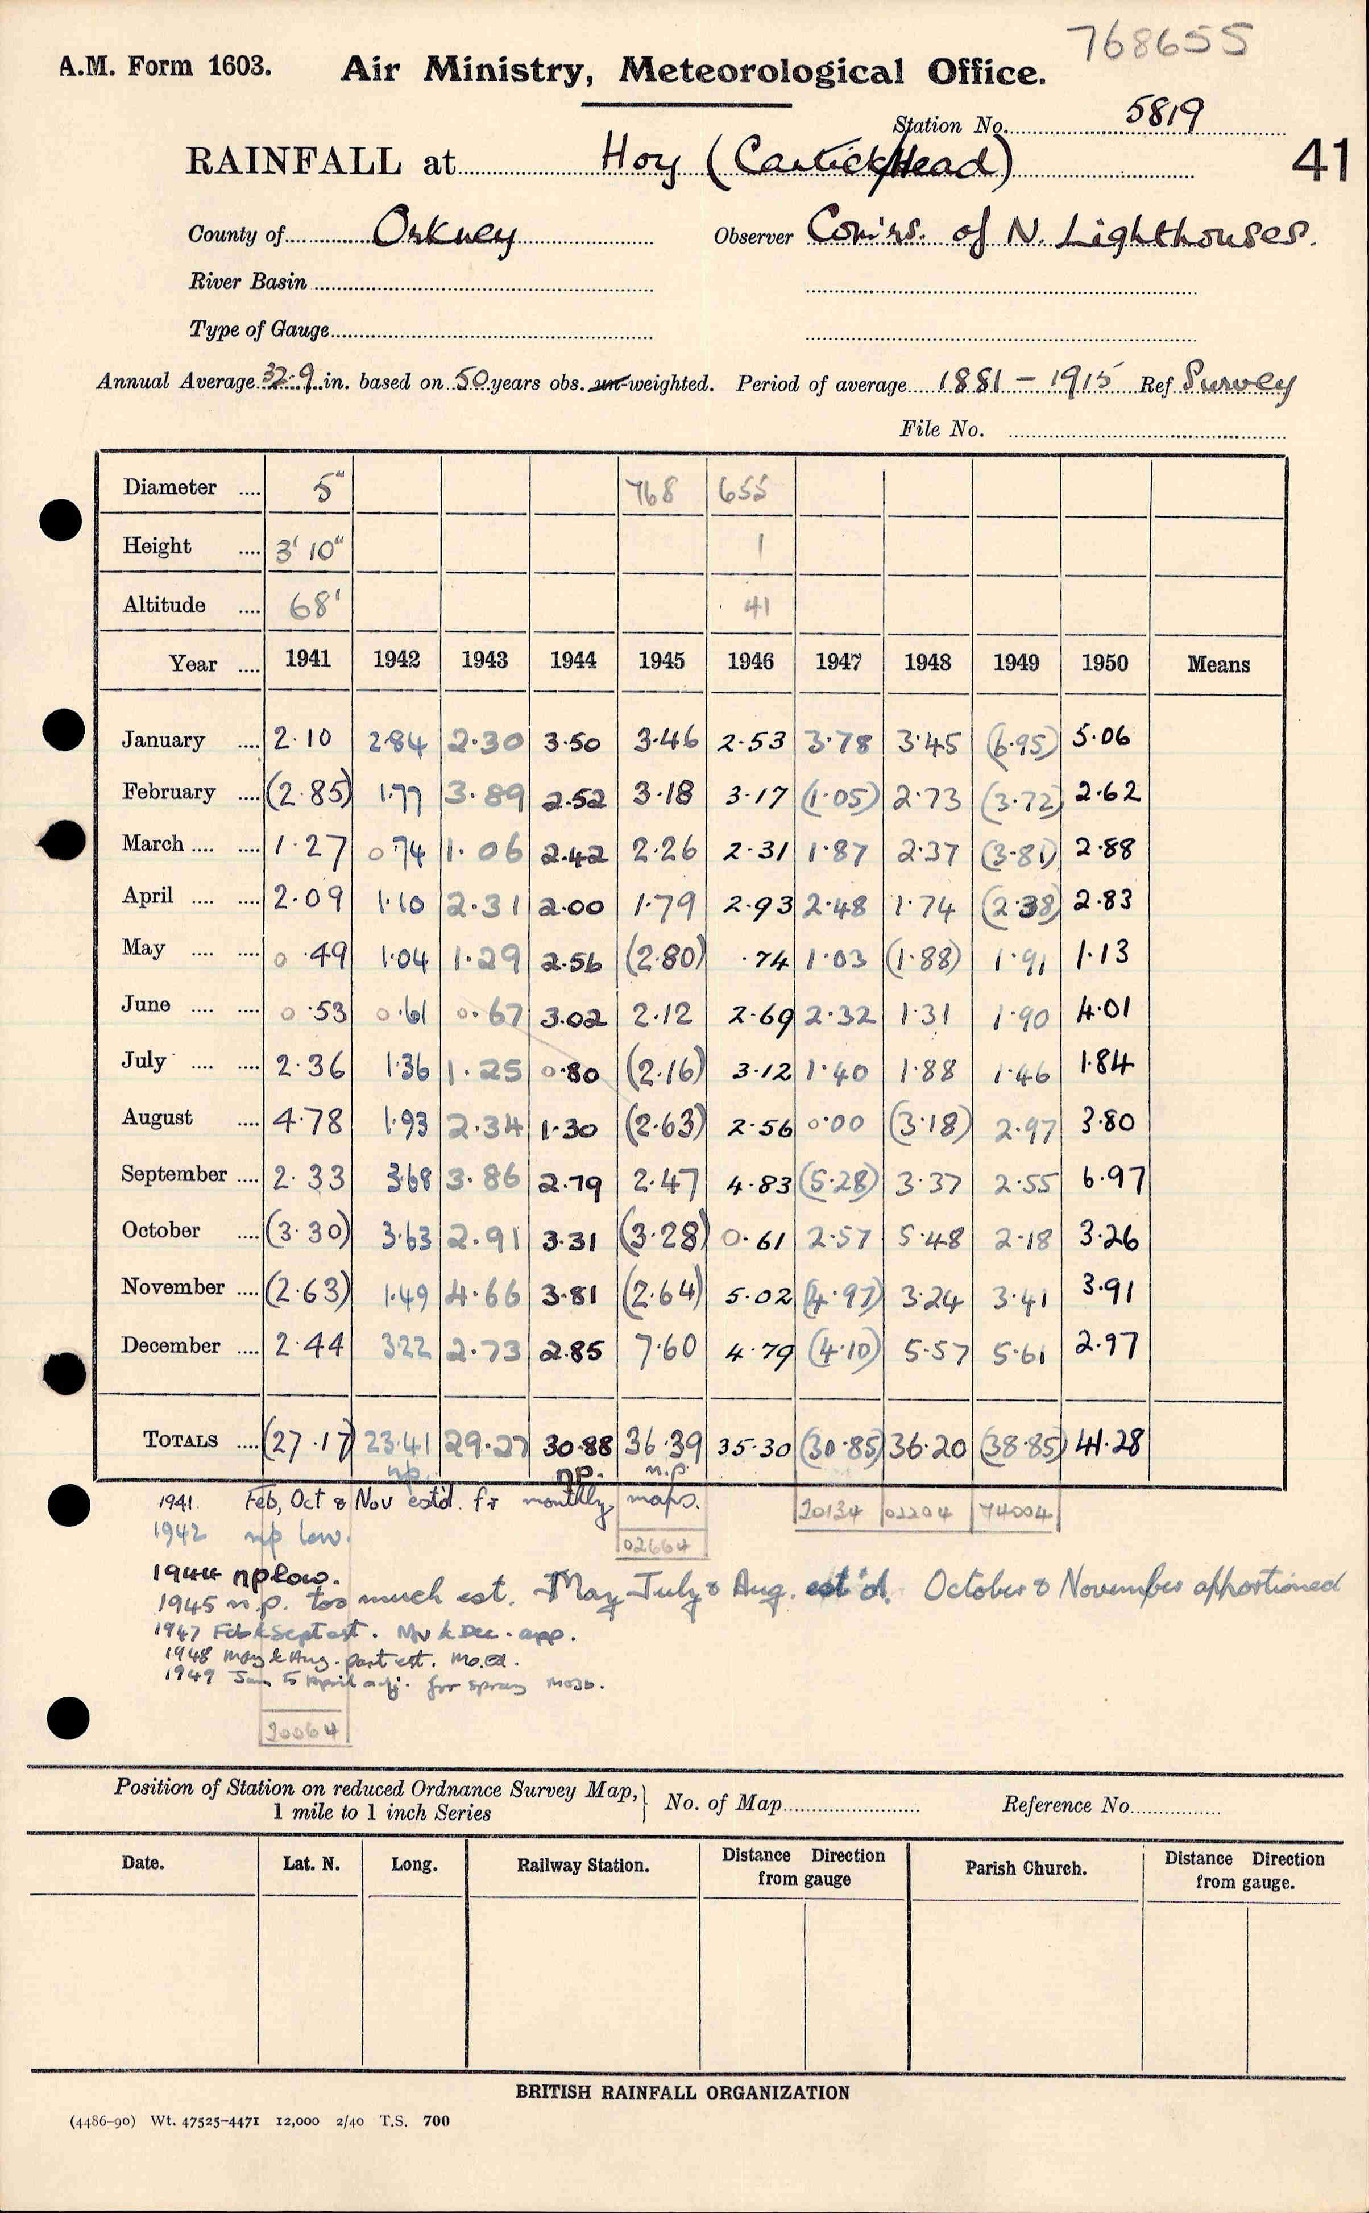 768655
A.M. Form 1603. Air Ministry, Meteorological Office.
Station No. 5819
RAINFALL at Hoy (Cantick Head) 41
County of Orkney Observer Comrs. of N. Lighthouses.
River Basin
Type of Gauge
Annual Average 32.9 in. based on 50 years obs. un-weighted. Period of average 1881 - 1915 Ref Survey
File No.
Diameter 5" 768 655
Height 3' 10" 1
Altitude 68' 41
Year 1941 1942 1943 1944 1945 1946 1947 1948 1949 1950 Means
January 2.10 2.84 2.30 3.50 3.46 2.53 3.78 3.45 (6.95) 5.06
February (2.85) 1.77 3.89 2.52 3.18 3.17 (1.05) 2.73 (3.72) 2.62
March 1.27 0.74 1.06 2.42 2.26 2.31 1.87 2.37 (3.81) 2.88
April 2.09 1.10 2.31 2.00 1.79 2.93 2.48 1.74 (2.38) 2.83
May 0.49 1.04 1.29 2.56 (2.80) .74 1.03 (1.88) 1.91 1.13
June 0.53 0.61 0.67 3.02 2.12 2.69 2.32 1.31 1.90 4.01
July 2.36 1.36 1.25 0.80 (2.16) 3.12 1.40 1.88 1.46 1.84
August 4.78 1.93 2.34 1.30 (2.63) 2.56 0.00 (3.18) 2.97 3.80
September 2.33 3.68 3.86 2.79 2.47 4.83 (5.28) 3.37 2.55 6.97
October (3.30) 3.63 2.91 3.31 (3.28) 0.61 2.57 5.48 2.18 3.26
November (2.63) 1.49 4.66 3.81 (2.64) 5.02 (4.97) 3.24 3.41 3.91
December 2.44 3.22 2.73 2.85 7.60 4.79 (4.10) 5.57 5.61 2.97
TOTALS (27.17) 23.41 29.27 30.88 36.39 35.30 (30.85) 36.20 (38.85) 41.28
np. np. n.p.
1941 Feb, Oct & Nov est'd. fr monthly maps. 20134 02204 74004
1942 np low. 02664
1944 np low.
1945 n.p. too much est. May July & Aug. est'd. October & November apportioned
1947 Feb & Sept est. Nv & Dec. app.
1948 May & Aug. part est. Mo.
1949 Jan to April adj. for spray
20064
Position of Station on reduced Ordnance Survey Map, 1 mile to 1 inch Series No. of Map Reference No.
Date. Lat. N. Long. Railway Station. Distance Direction from gauge Parish Church. Distance Direction from gauge.
BRITISH RAINFALL ORGANIZATION
(4486-90) Wt. 47525-4471 12,000 2/40 T.S. 700